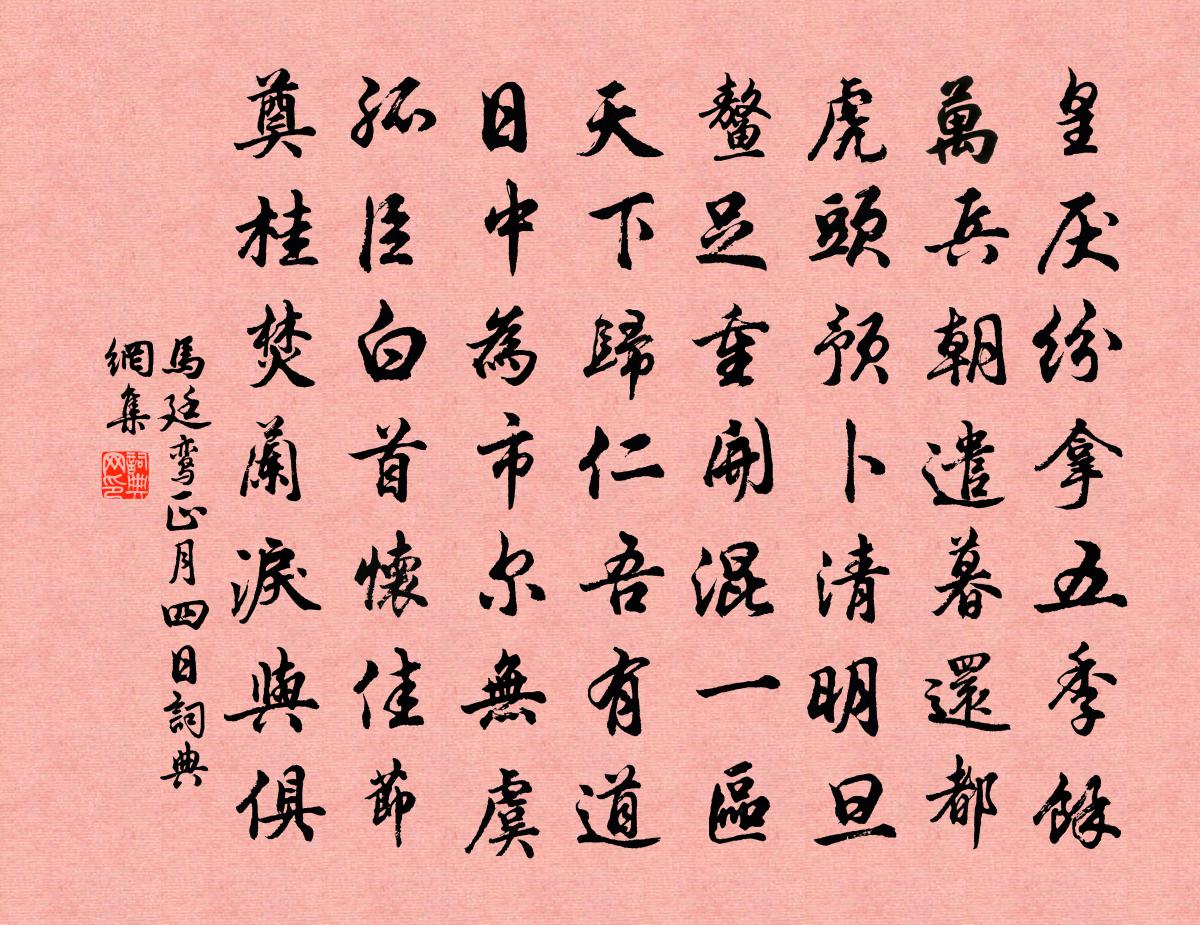 皇厌纷拿五季餘
萬兵朝遣暮還都
虎頭预卜清明旦
鳌足重開混一區
天下歸仁吾有道
日中為市尔無虞
孤臣白首懷佳節
奠桂焚蘭淚與俱
馬廷鸾正月四日詞典
網集
詞典
网印